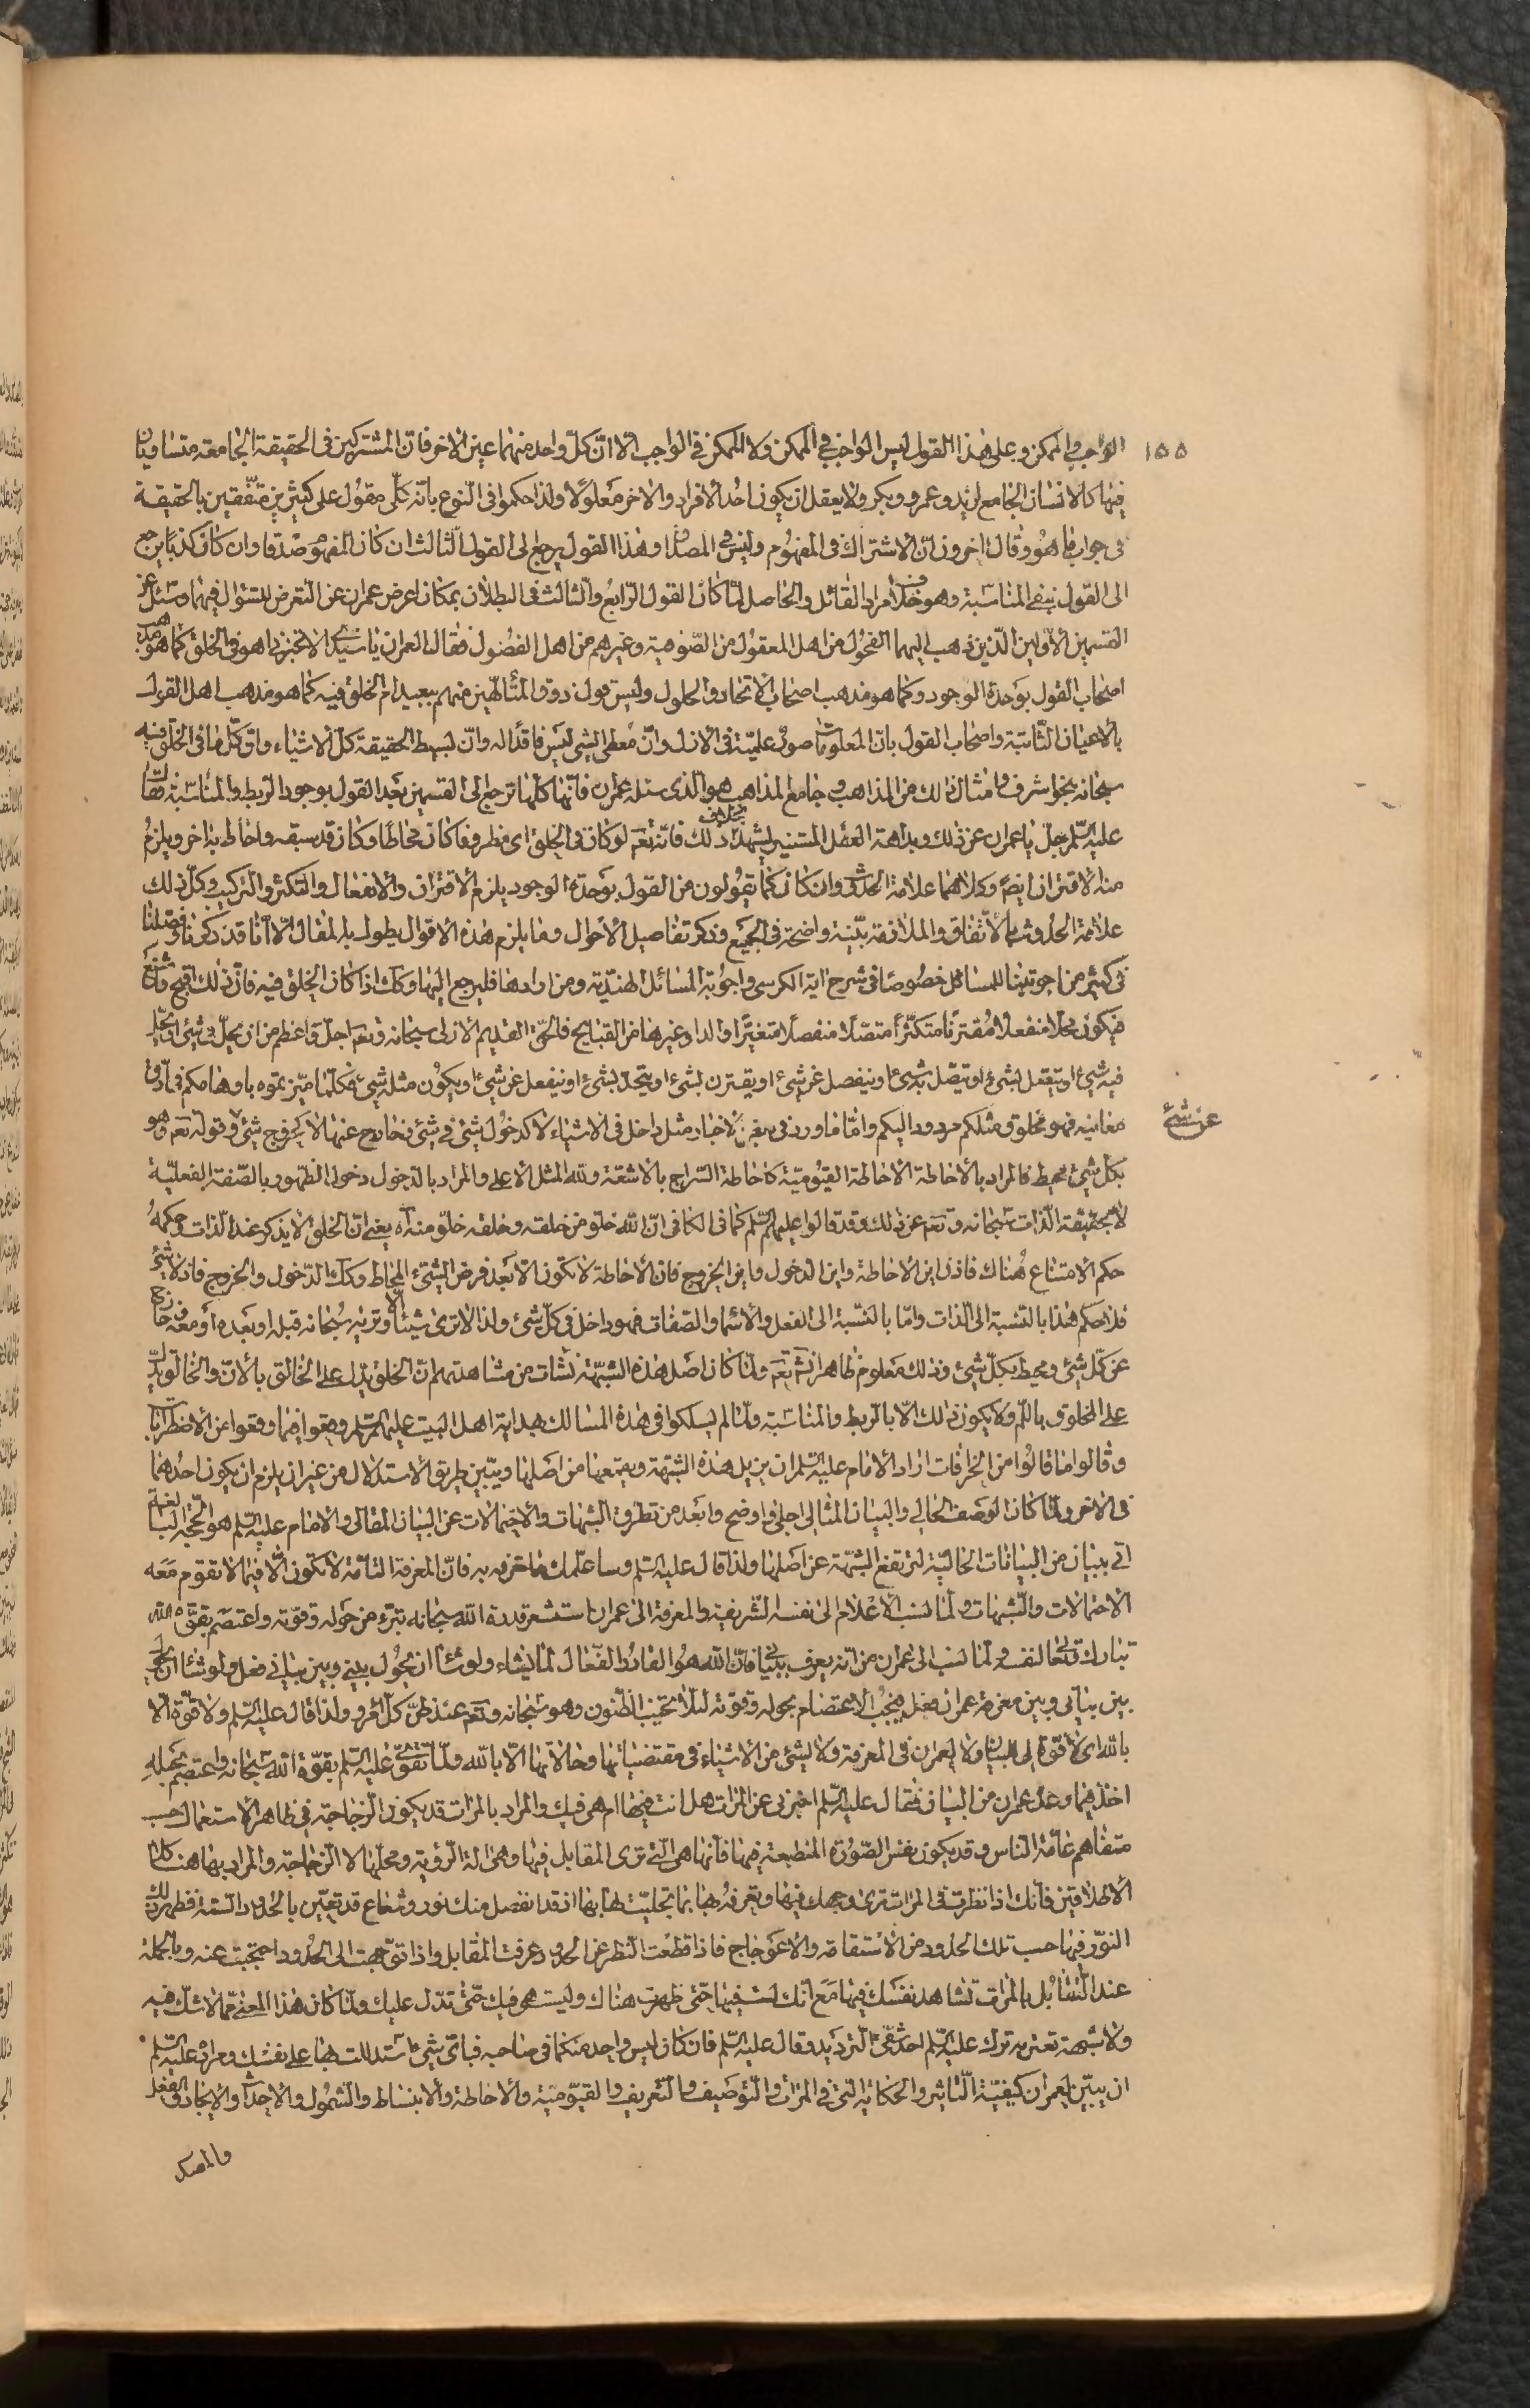 ١٥٥
الواجب والممكن وعلى هذا القول ليس الواجب في الممكن ولا الممكن في الواجب الا ان كل واحد منهما عين الاخر فان المشتركين في الحقيقة الجامعة متساويان
فيها كالانسان الجامع لزيد وعمرو وبكر ولا يعقل ان يكون احد الافراد والاخر معلولا ولذا حكموا في النوع بانه كلي مقول على كثيرين متفقين بالحقيقة
في جواب ما هو وقال اخرون ان الاشتراك في المفهوم وليس في المصداق وهذا القول يرجع الى القول الثالث ان كان المفهوم صدقا وان كان كذبا يرجع
الى القول بنفي المناسبة وهو خلاف مراد القائل والحاصل لما كان القول الرابع والثالث في البطلان بمكان اعرض عمران عن التعرض للسئوال فيهما وسئل عن
القسمين الاولين الذين ذهب اليهما الفحول من اهل المعقول من الصوفية وغيرهم من اهل الفضول فقال العمران يا سيدي الا تخبرني اهو في الخلق كما هو مذهب
اصحاب القول بوحدة الوجود وكما هو مذهب اصحاب الاتحاد والحلول وليس قول ذوق المتألهين منهم ببعيد ام الخلق فيه كما هو مذهب اهل القول
بالاعيان الثابتة واصحاب القول بان المعلومات صور علمية في الازل وان معطى الشي ليس فاقدا له وان بسيط الحقيقة كل الاشياء وان كل ما في الخلق فيه
سبحانه بنحو اشرف وامثال ذلك من المذاهب وجامع المذاهب هو الذي سئله عمران فانها كلها ترجع الى القسمين بعد القول بوجود الربط والمناسبة فقال
عليه السلم جل يا عمران عن ذلك وبداهة العقل المستنير يشهد بخلاف ذلك فانه تعم لو كان في الخلق اي مظروفا كان محاطا وكان قد سبقه واحاط به اخر ويلزم
منه الاقتران ايضا وكلاهما علامة الحدوث وان كان كما يقولون من القول بوحدة الوجود يلزم الاقتران والانفعال والتكثر والتركيب وكل ذلك
علامة الحدوث بالاتفاق والملازمة بينة واضحة في الجميع وذكر تفاصيل الاحوال وما يلزم هذه الاقوال يطول به المقال الا انا قد ذكرنا وفصلنا
في كثير من اجوبتنا للمسائل خصوصا في شرح اية الكرسي واجوبة المسائل الهندية ومن ارادها فليرجع اليها وكك اذا كان الخلق فيه فان ذلك اقبح واشنع
فيكون محلا منفعلا مقترنا متكثرا متصلا منفصلا متغيرا والدا وغيرها من القبايح فالحق القديم الازلي سبحانه وتعم اجل واعظم من ان يحل في شئ او يحل
فيه شئ او ينفعل بشئ او يتصل به شئ او ينفصل عن شئ او يقترن بشئ او يتحد بشئ او ينفعل عن شئ او يكون مثله شئ فكلما ميزتموه باوهامكم في ادق
معانيه فهو مخلوق مثلكم مردود اليكم واما ما ورد في بعض الاخبار مثل داخل في الاشياء لا كدخول شئ في شئ وخارج عنها لا كخروج شئ وقوله تعم وهو
عن شئ
بكل شئ محيط فالمراد بالاحاطة الاحاطة القيومية كاحاطة السراج بالاشعة ولله المثل الاعلى والمراد بالدخول دخول الظهور بالصفة الفعلية
لا بحقيقة الذات سبحانه وتعم عن ذلك وقد قالوا عليهم السلم كما في الكافي ان الله خلو من خلقه وخلقه خلو منه آه يعني ان الخلق لا يذكر عند الذات وحكمه
حكم الامتناع هناك فاذن اين الاحاطة واين الدخول واين الخروج فان الاحاطة لا تكون الا بعد فرض الشئ المحاط وكك الدخول والخروج فاذ لا شئ
فلا حكم هذا بالنسبة الى الذات واما بالنسبة الى الفعل والاسماء والصفات فهو داخل في كل شئ ولذا لا ترى شيئا الا وتريه سبحانه قبله او بعده او معه خارج
عن كل شئ ومحيط بكل شئ وذلك معلوم ظاهر انشٓ تعم ولما كان اصل هذه الشبهة نشات من مشاهدتهم ان الخلق يدل على الخالق بالان والخالق يدل
على المخلوق باللم ولا يكون ذلك الا بالربط والمناسبة ولما لم يسلكوا في هذه المسالك هداية اهل البيت عليهم السلم وقعوا فيما وقعوا عن الاضطراب
وقالوا ما قالوا من الخرفات اراد الامام عليه السلم ان يزيل هذه الشبهة ويقمعها من اصلها ويبين طريق الاستدلال من غير ان يلزم ان يكون احدهما
في الاخر ولما كان الوصف الحالي والبيان المثالي اجلى واوضح وابعد من تطرق الشبهات والاحتمالات عن البيان المقالي والامام عليه السلم هو الحجة البالغة
اتى ببيان من البيانات الحالية لترتفع الشبهة عن اصلها ولذا قال عليه السلم وساعلمك ما تعرفه به فان المعرفة التامة لا تكون الا فيما لا تقوم معه
الاحتمالات والشبهات ولما نسب الاعلام الى نفسه الشريفة والمعرفة الى عمران استشعر قدرة الله سبحانه تبرء من حوله وقوته واعتصم بقوة الله
تبارك وتعالى لنفسه ولما نسب الى عمران من انه يعرف ببياني فان الله هو القائد الفعال لما يشاء ولو شاء ان يحول بيني وبين بياني فعل ولو شاء ان يحول
بين بياني وبين معرفة عمران فعل فيجب الاعتصام بحوله وقوته لئلا تخيب الظنون وهو سبحانه وتعم عند ظن كل امرء ولذا قال عليه السلم ولا قوة الا
بالله اي لا قوة لي للبيان ولا لعمران في المعرفة ولا لشئ من الاشياء في مقتضياتها وحالاتها الا بالله ولما تقوى عليه السلم بقوة الله سبحانه واعتصم بحبله
اخذ فيما وعد عمران من البيان فقال عليه السلم اخبرني عن المرات هل انت فيها ام هي فيك والمراد بالمرات قد يكون الزجاجة في ظاهر الاستعمال حسب
متفاهم عامة الناس وقد يكون نفس الصورة المنطبعة فيها فانها هي التي ترى المقابل فيها وهي الة الرؤية ومحلها لا الزجاجة والمراد بها هنا كلا
الاطلاقين فانك اذا نظرت في المرات ترى وجهك فيها وتعرفه بها بما تجليت لها بها اذ قد انفصل منك نور وشعاع قد تعين بالحدود الستة فظهر ذلك
النور فيها حسب تلك الحدود من الاستقامة والاعوجاج فاذا قطعت النظر عن الحدود عرفت المقابل واذا توجهت الى الحدود احتجبت عنه وبالجملة
عند التقابل بالمرات تشاهد نفسك فيها مع انك لست فيها حتى ظهرت هناك وليست هي فيك حتى تدل عليك ولما كان هذا المعنى مما لا شك فيه
ولا شبهة تعتريه ترك عليه السلم احد شقي الترديد وقال عليه السلم فان كان ليس واحد منكما في صاحبه فباي شئ استدللت بها على نفسك ومراده عليه السلم
ان يبين لعمران كيفية التاثير والحكاية التي في المرات والتوصيف والتعريف والقيومية والاحاطة والانبساط والشمول والاحداث والايجاد والفعل